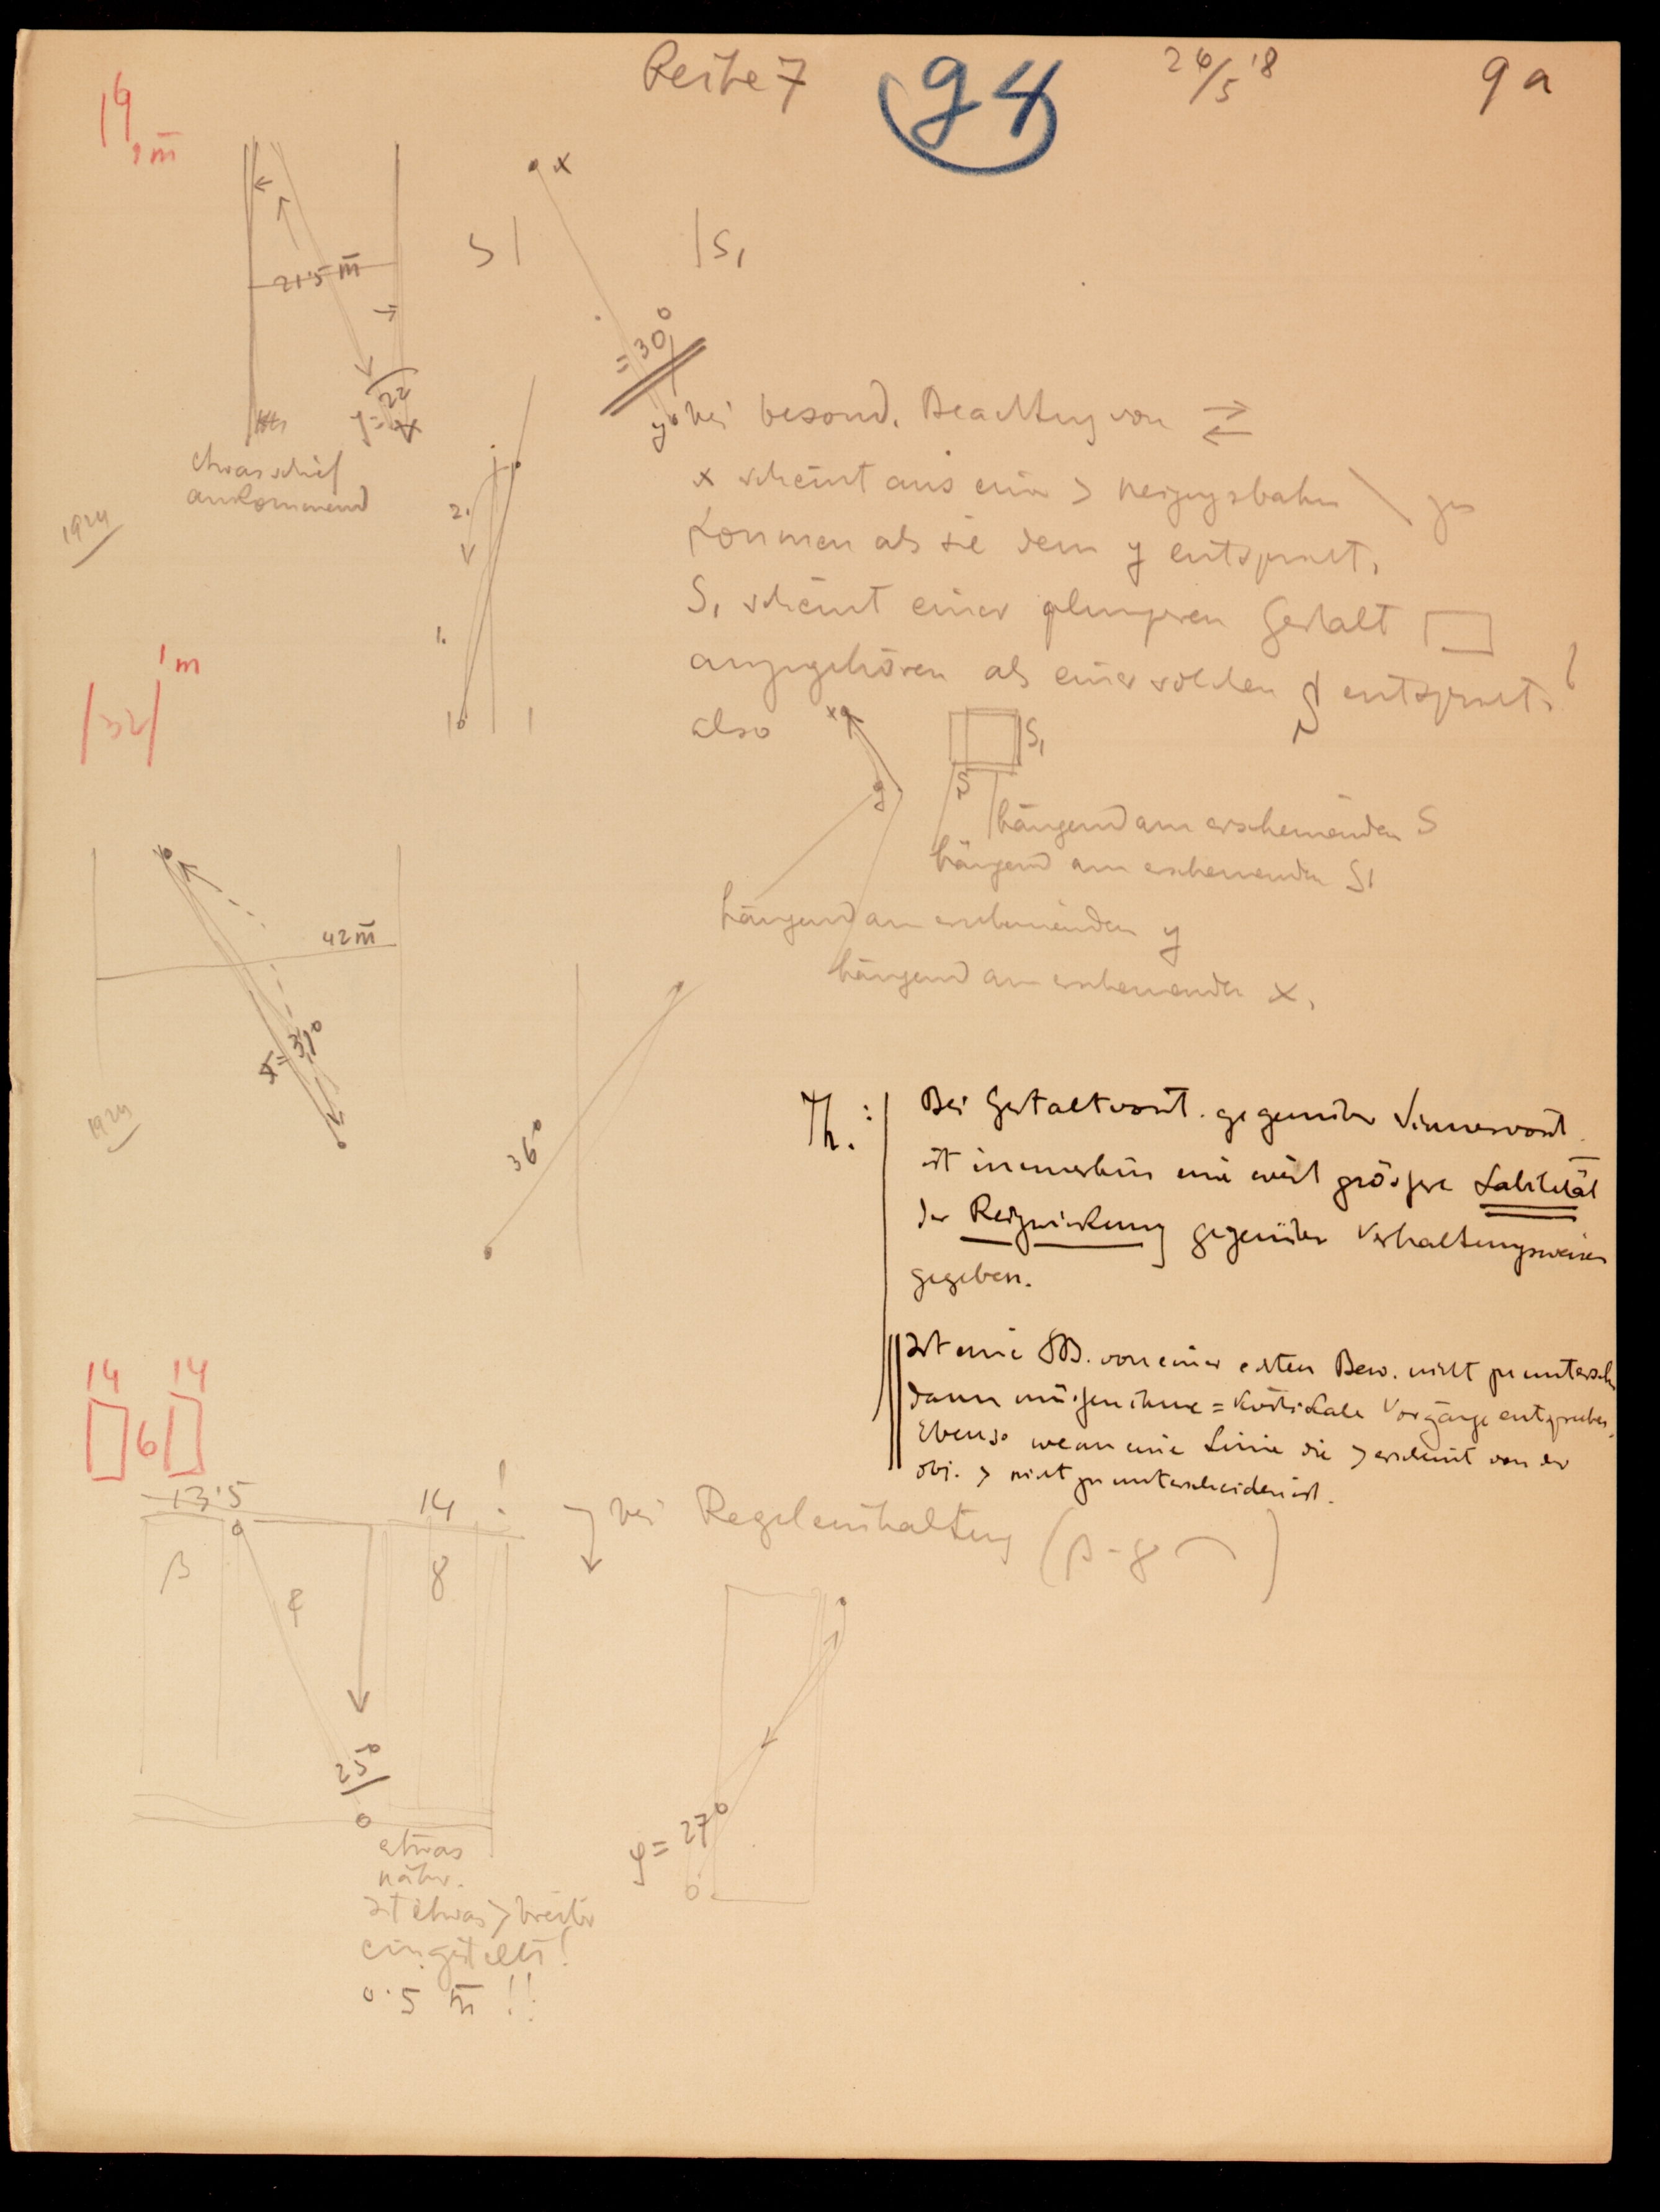 Reihe 7
94
26/5 '8
9a
16
1 m̄
21·5 m̄
S
x
S₁
= 30°
y
22
etwas schief
ankommend
1924
2.
1.
bei besond. Beachtung von ⇄
x scheint aus einer > Neigungsbahn \ zu
kommen als sie dem y entspricht.
S₁ scheint einer Gestalt ▭
anzugehören als einer solchen S entspricht.
also
x
y
S₁
S
hängend am erscheinenden S
hängend am erscheinenden S₁
hängend am erscheinenden y
hängend am erscheinenden x.
|32| 1 m
42 m̄
= 37°
1924
36°
Th.:
Bei Gestaltvorst. gegenüber Sinnesvorst.
ist immerhin eine weit grössere Labilität
der Reizwirkung gegenüber Verhaltungsweisen
gegeben.
Ist eine SB. von einer echten Bew. nicht zu untersch.
dann müssen ihnen = kortikale Vorgänge entsprechen.
Ebenso wenn eine Linie die > erscheint von der
obj. > nicht zu unterscheiden ist.
14 14
6
13·5
14 !
β
φ
8
bei Regeleinhaltung
25°
etwas
näher.
ist etwas > breiter
eingestellt!
0·5 m̄ !!
φ = 27°